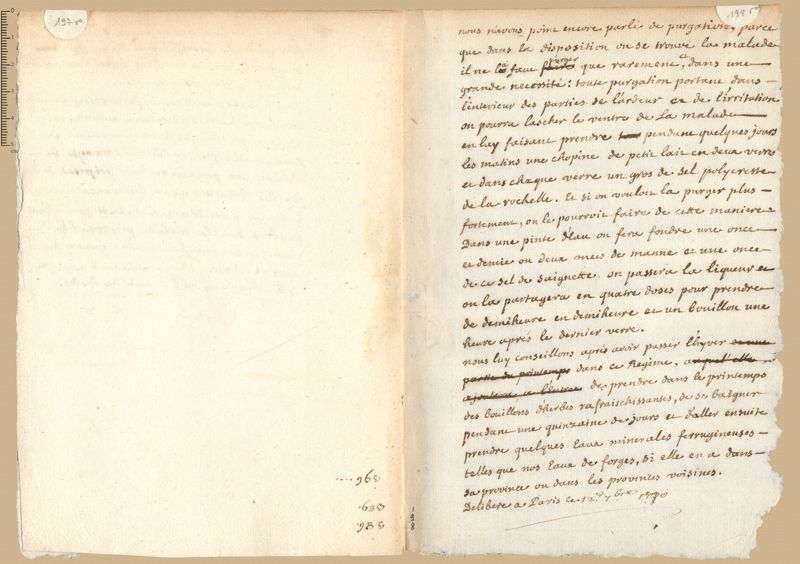 197 ro
198 ro
nous navons point encore parlé de purgation, parce
que dans la disposition ou se trouve la malade
purger
il ne la faut faire que rarement, et dans une
grande necessité: toute purgation portant dans
l'interieur des parties de l'ardeur et de l'irritation
on pourra lascher le ventre de La malade
en luy faisant prendre pendant quelques jours
les matins une chopine de petit lait en deux verre
et dans chaque verre un gros de sel polycreste
de la rochelle. Et si on vouloit la purger plus
fortement, on le pourroit faire de cette maniere
Dans une pinte d'Eau on fera fondre une once
et demie ou deux onces de manne et une once
de ce sel de saignette. on passera la liqueur et
on la partagera en quatre doses pour prendre
de demiheure en demiheure et un bouillon une
heure après le dernier verre.
nous luy conseillons après avoir passer l'hyver et une
partie du printemps dans ce Regime, auquel elle
ajoutera a l'entrée de prendre dans le printemps
des bouillons d'herbes rafraischissantes, de se baigner
pendant une quinzaine de jours et d'aller ensuite
prendre quelques Eaux minerales ferrugineuses
telles que nos Eaux de forges, si elle en a dans
sa province ou dans les provinces voisines.
Delibere a Paris ce 12e 7bre
198